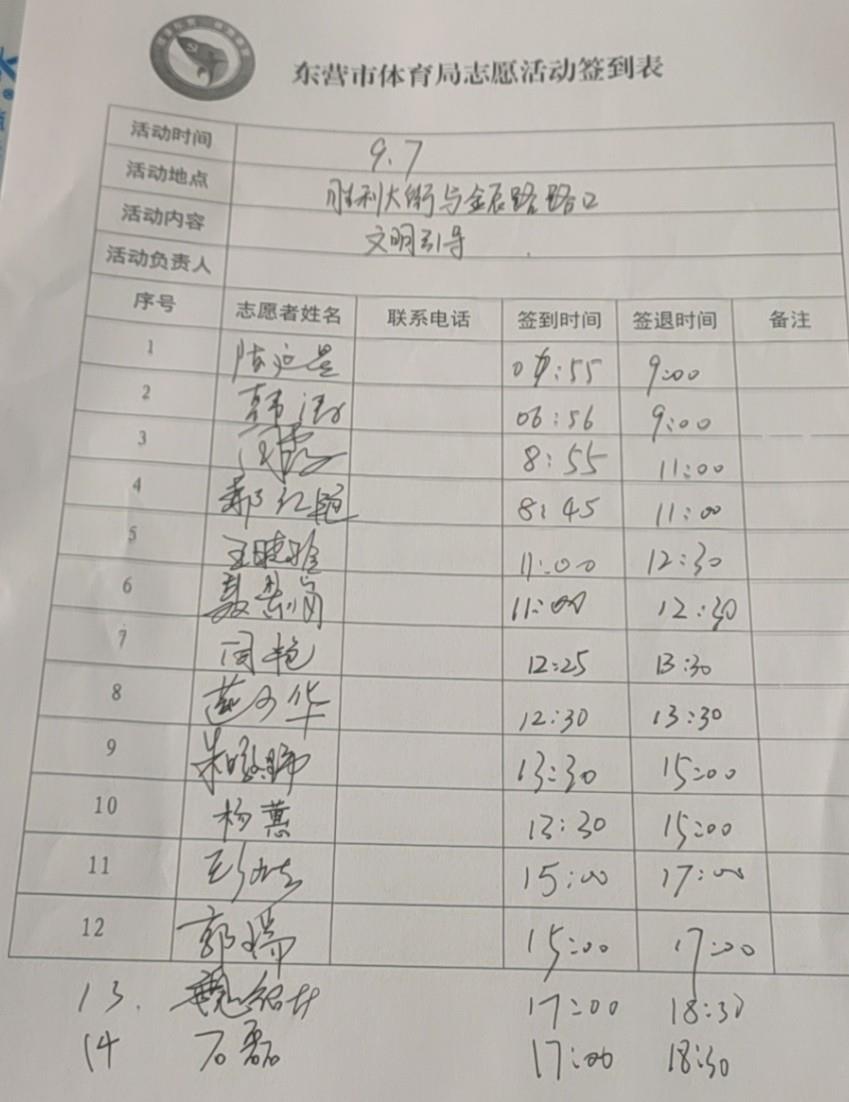 东营市体育局志愿活动签到表
活动时间 9.7
活动地点 胜利大街与金辰路路口
活动内容 文明引导
活动负责人
序号 志愿者姓名 联系电话 签到时间 签退时间 备注
1 陈 06:55 9:00
2 韩 06:56 9:00
3 8:55 11:00
4 郭红艳 8:45 11:00
5 王晓雅 11:00 12:30
6 聂 11:00 12:30
7 闫艳 12:25 13:30
8 华 12:30 13:30
9 朱 13:30 15:00
10 杨慧 13:30 15:00
11 15:00 17:00
12 郭瑞 15:00 17:00
13. 魏 17:00 18:30
14 石磊 17:00 18:30